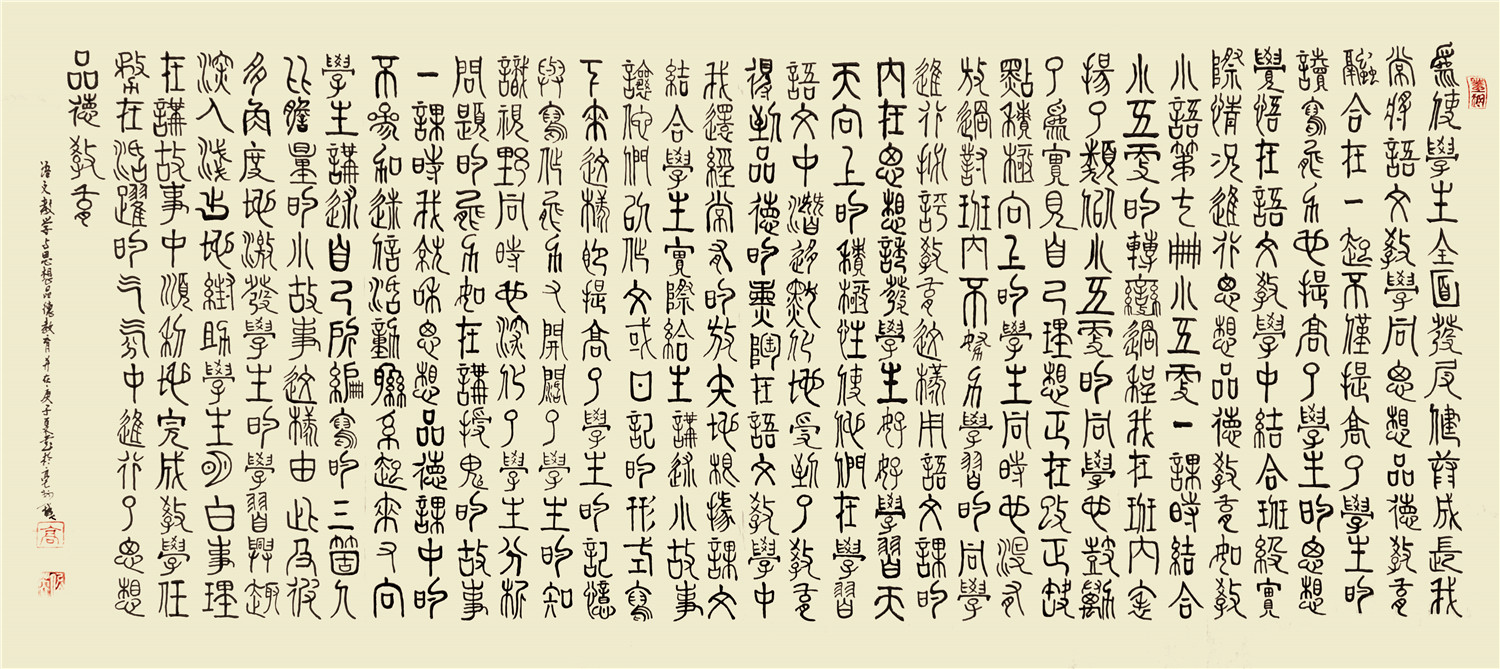 為使學生全面發展健康成長我
常將語文教學同思想品德教育
融合在一起不僅提高了學生的
讀寫能力也提高了學生的思想
覺悟在語文教學中結合班級實
際情況進行思想品德教育如教
小語第七冊小五一課時結合
小五的轉變過程我在班內宣
揚了類似小五的同學也鼓勵
了為實現自己理想正在改正缺
點積極向上的學生同時也沒有
放過對班內不努力學習的同學
進行批評教育這樣用語文課的
內在思想誘發學生好好學習天
天向上的積極性使他們在學習
語文中潛移默化地受到了教育
得到品德的熏陶在語文教學中
我還經常有的放矢地根據課文
結合學生實際給生講述小故事
讓他們以作文或日記的形式寫
下來這樣既提高了學生的記憶
與寫作能力又開闊了學生的知
識視野同時也深化了學生分析
問題的能力如在講授鬼的故事
一課時我就和思想品德課中的
不參加迷信活動聯系起來又向
學生講述自己所編寫的三個人
比膽量的小故事這樣由此及彼
多角度地激發學生的學習興趣
深入淺出地幫助學生明白事理
在講故事中順利地完成教學任
務在活躍的氣氛中進行了思想
品德教育
語文教學与思想品德教育 庚子夏